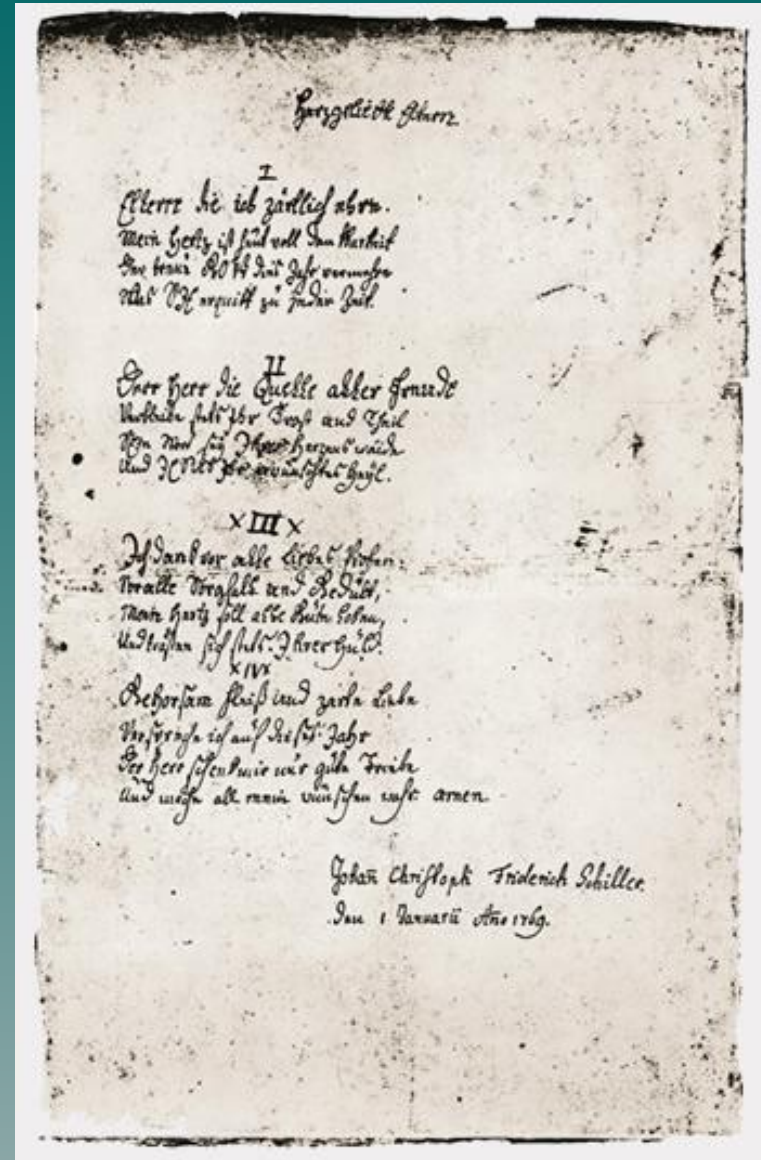 Herzgeliebte Eltern
I
Eltern die ich zärtlich ehre.
Mein Hertz ist heut voll Danckbarkeit
Der treue GOtt dies Jahr vermehre
Was SIE erquickt zu jeder Zeit.
II
Der Herr die Quelle aller Freude
Verbleibe stets Ihr Trost und Theil
Sein Wort sey Ihres Herzens Weide
Und JEsus Ihr erwünschtes Heyl.
X III X
Ich danck vor alle Liebes Proben,
Vor alle Sorgfalt und Gedult,
Mein Hertz soll alle Güte loben,
Und trösten sich stets Ihrer Huld.
X IV X
Gehorsam Fleiß und zarte Liebe
Verspreche ich auf dieses Jahr
Der Herr schenk mir nur gute Triebe
Und mache all mein wünschen wahr. amen.
Johañ Christoph Friderich Schiller.
Den 1 Januarii Año 1769.